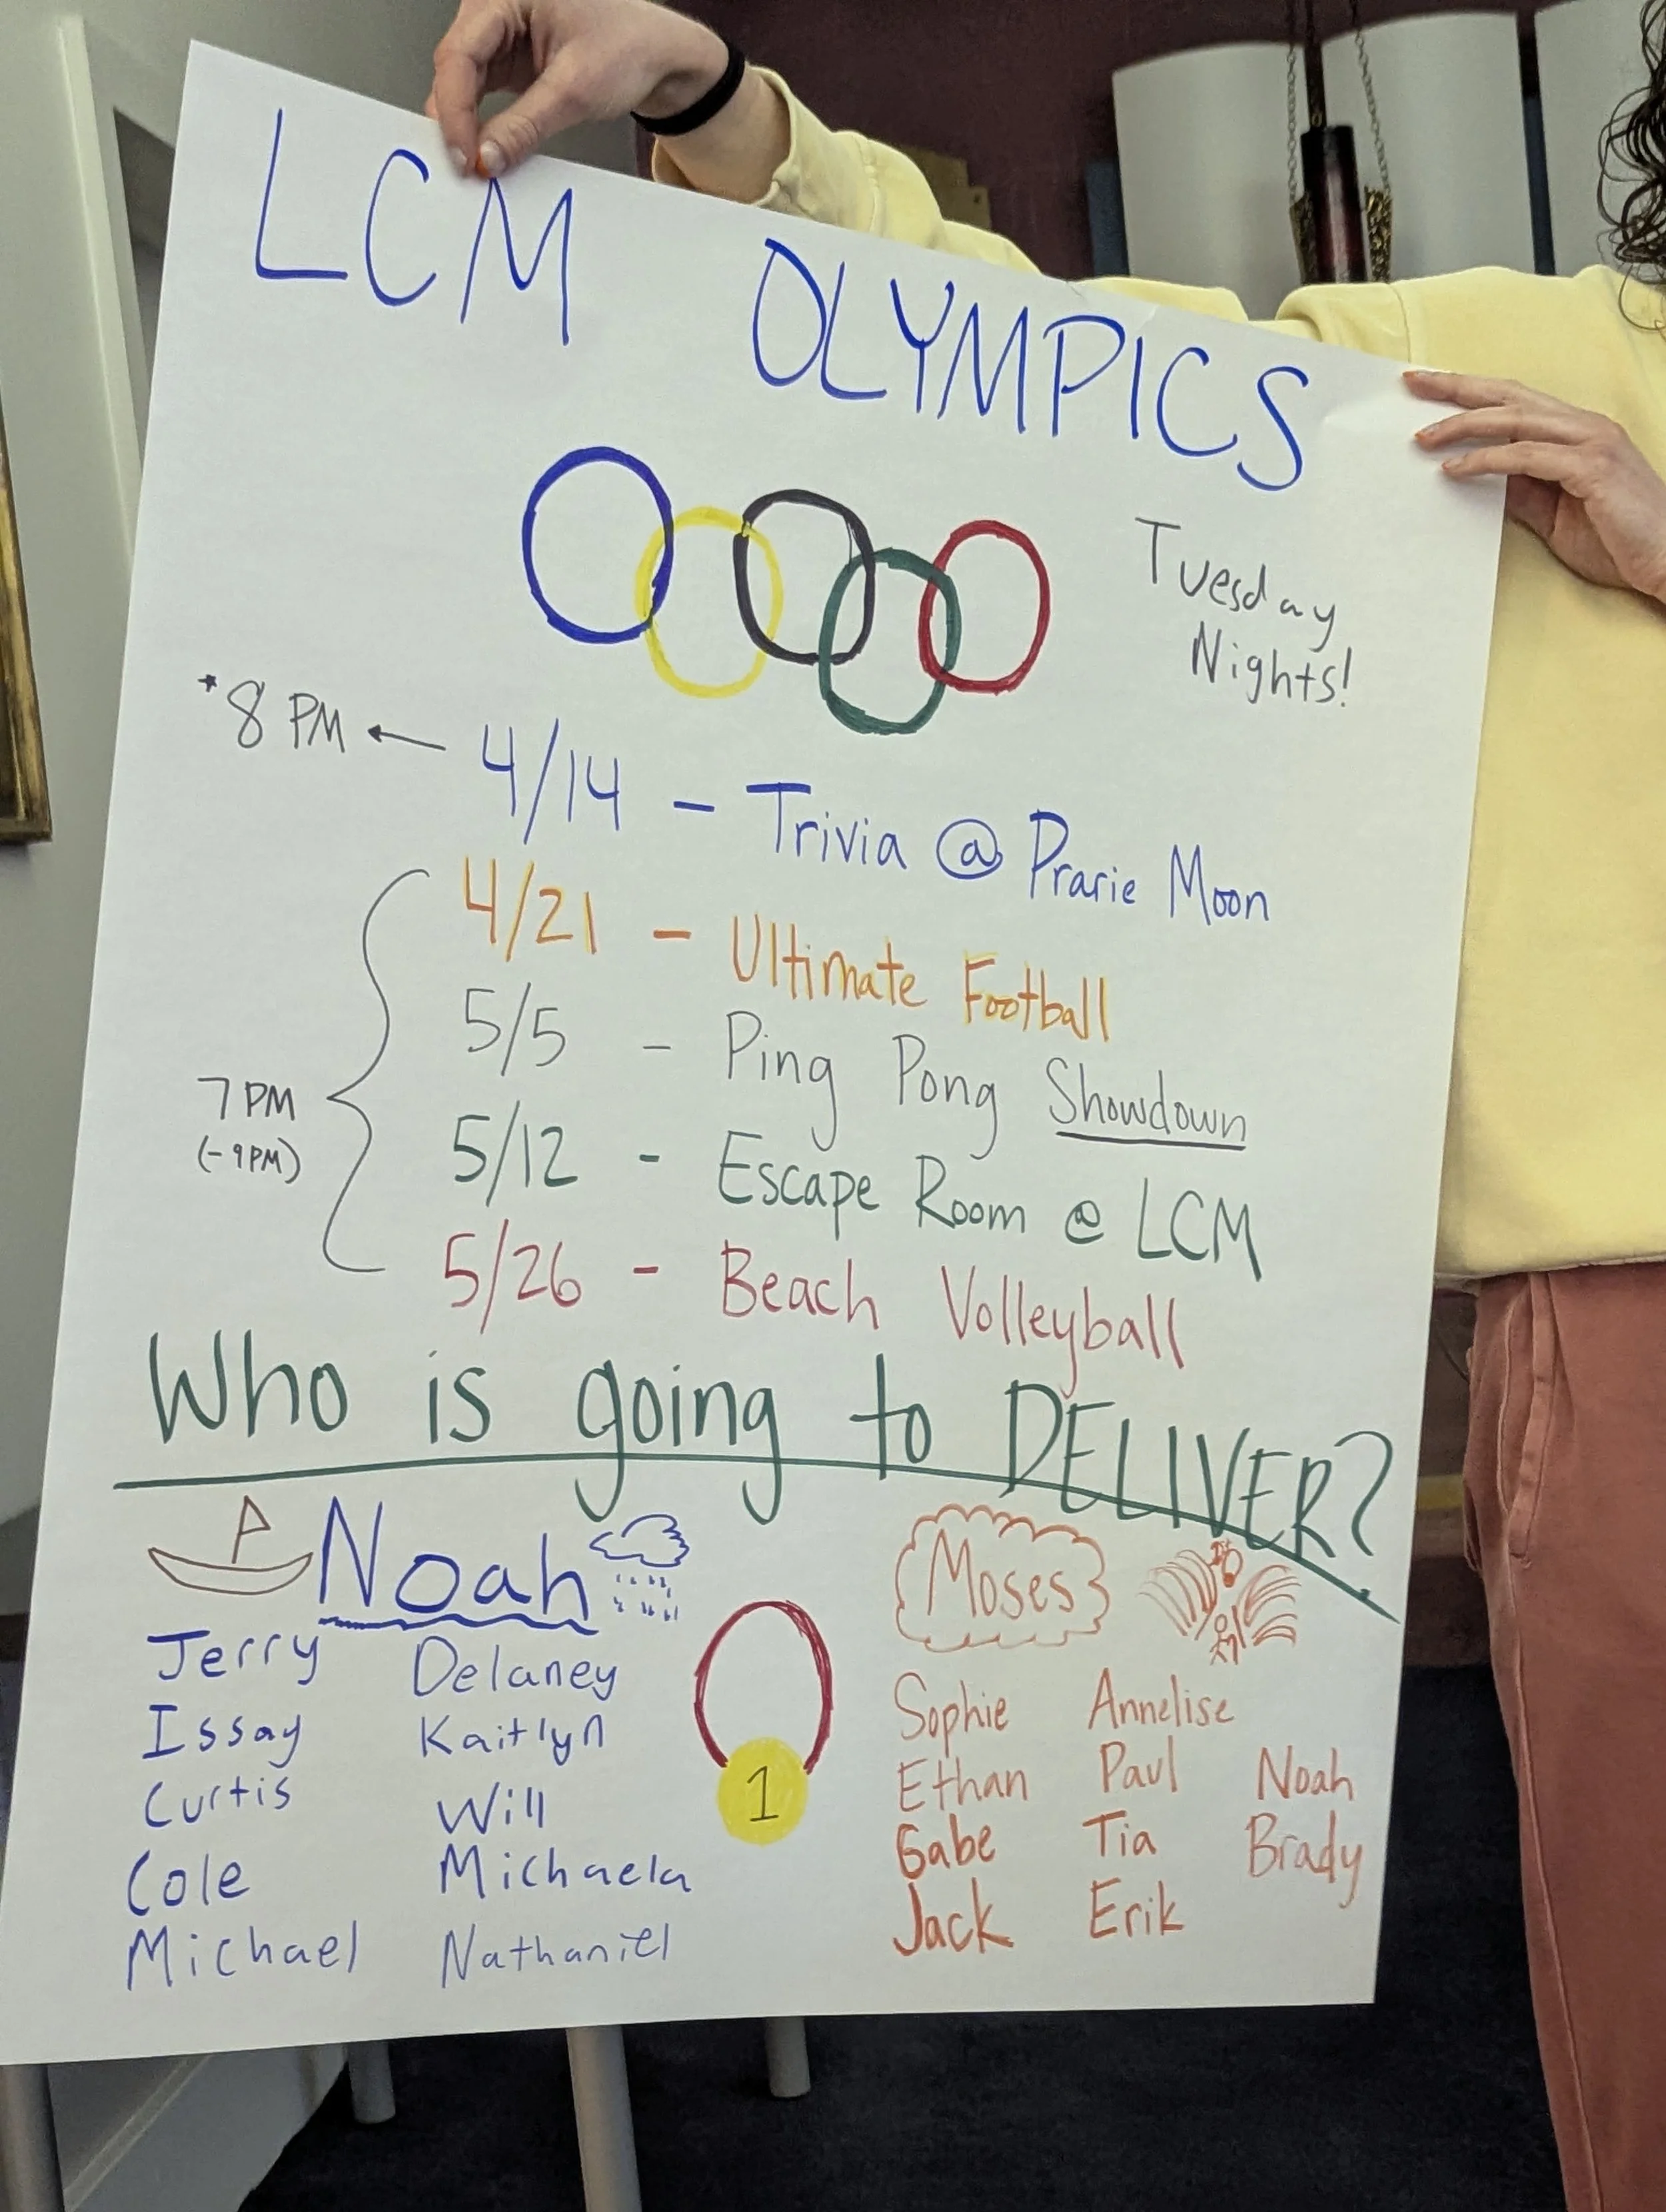 LCM OLYMPICS
Tuesday
Nights!
*8 PM ← 4/14 - Trivia @ Prarie Moon
4/21 - Ultimate Football
5/5 - Ping Pong Showdown
7 PM
(-9PM)
5/12 - Escape Room @ LCM
5/26 - Beach Volleyball
Who is going to DELIVER?
Noah
Jerry Delaney
Issay Kaitlyn
Curtis Will
Cole Michaela
Michael Nathaniel
1
Moses
Sophie Annelise
Ethan Paul Noah
Gabe Tia Brady
Jack Erik